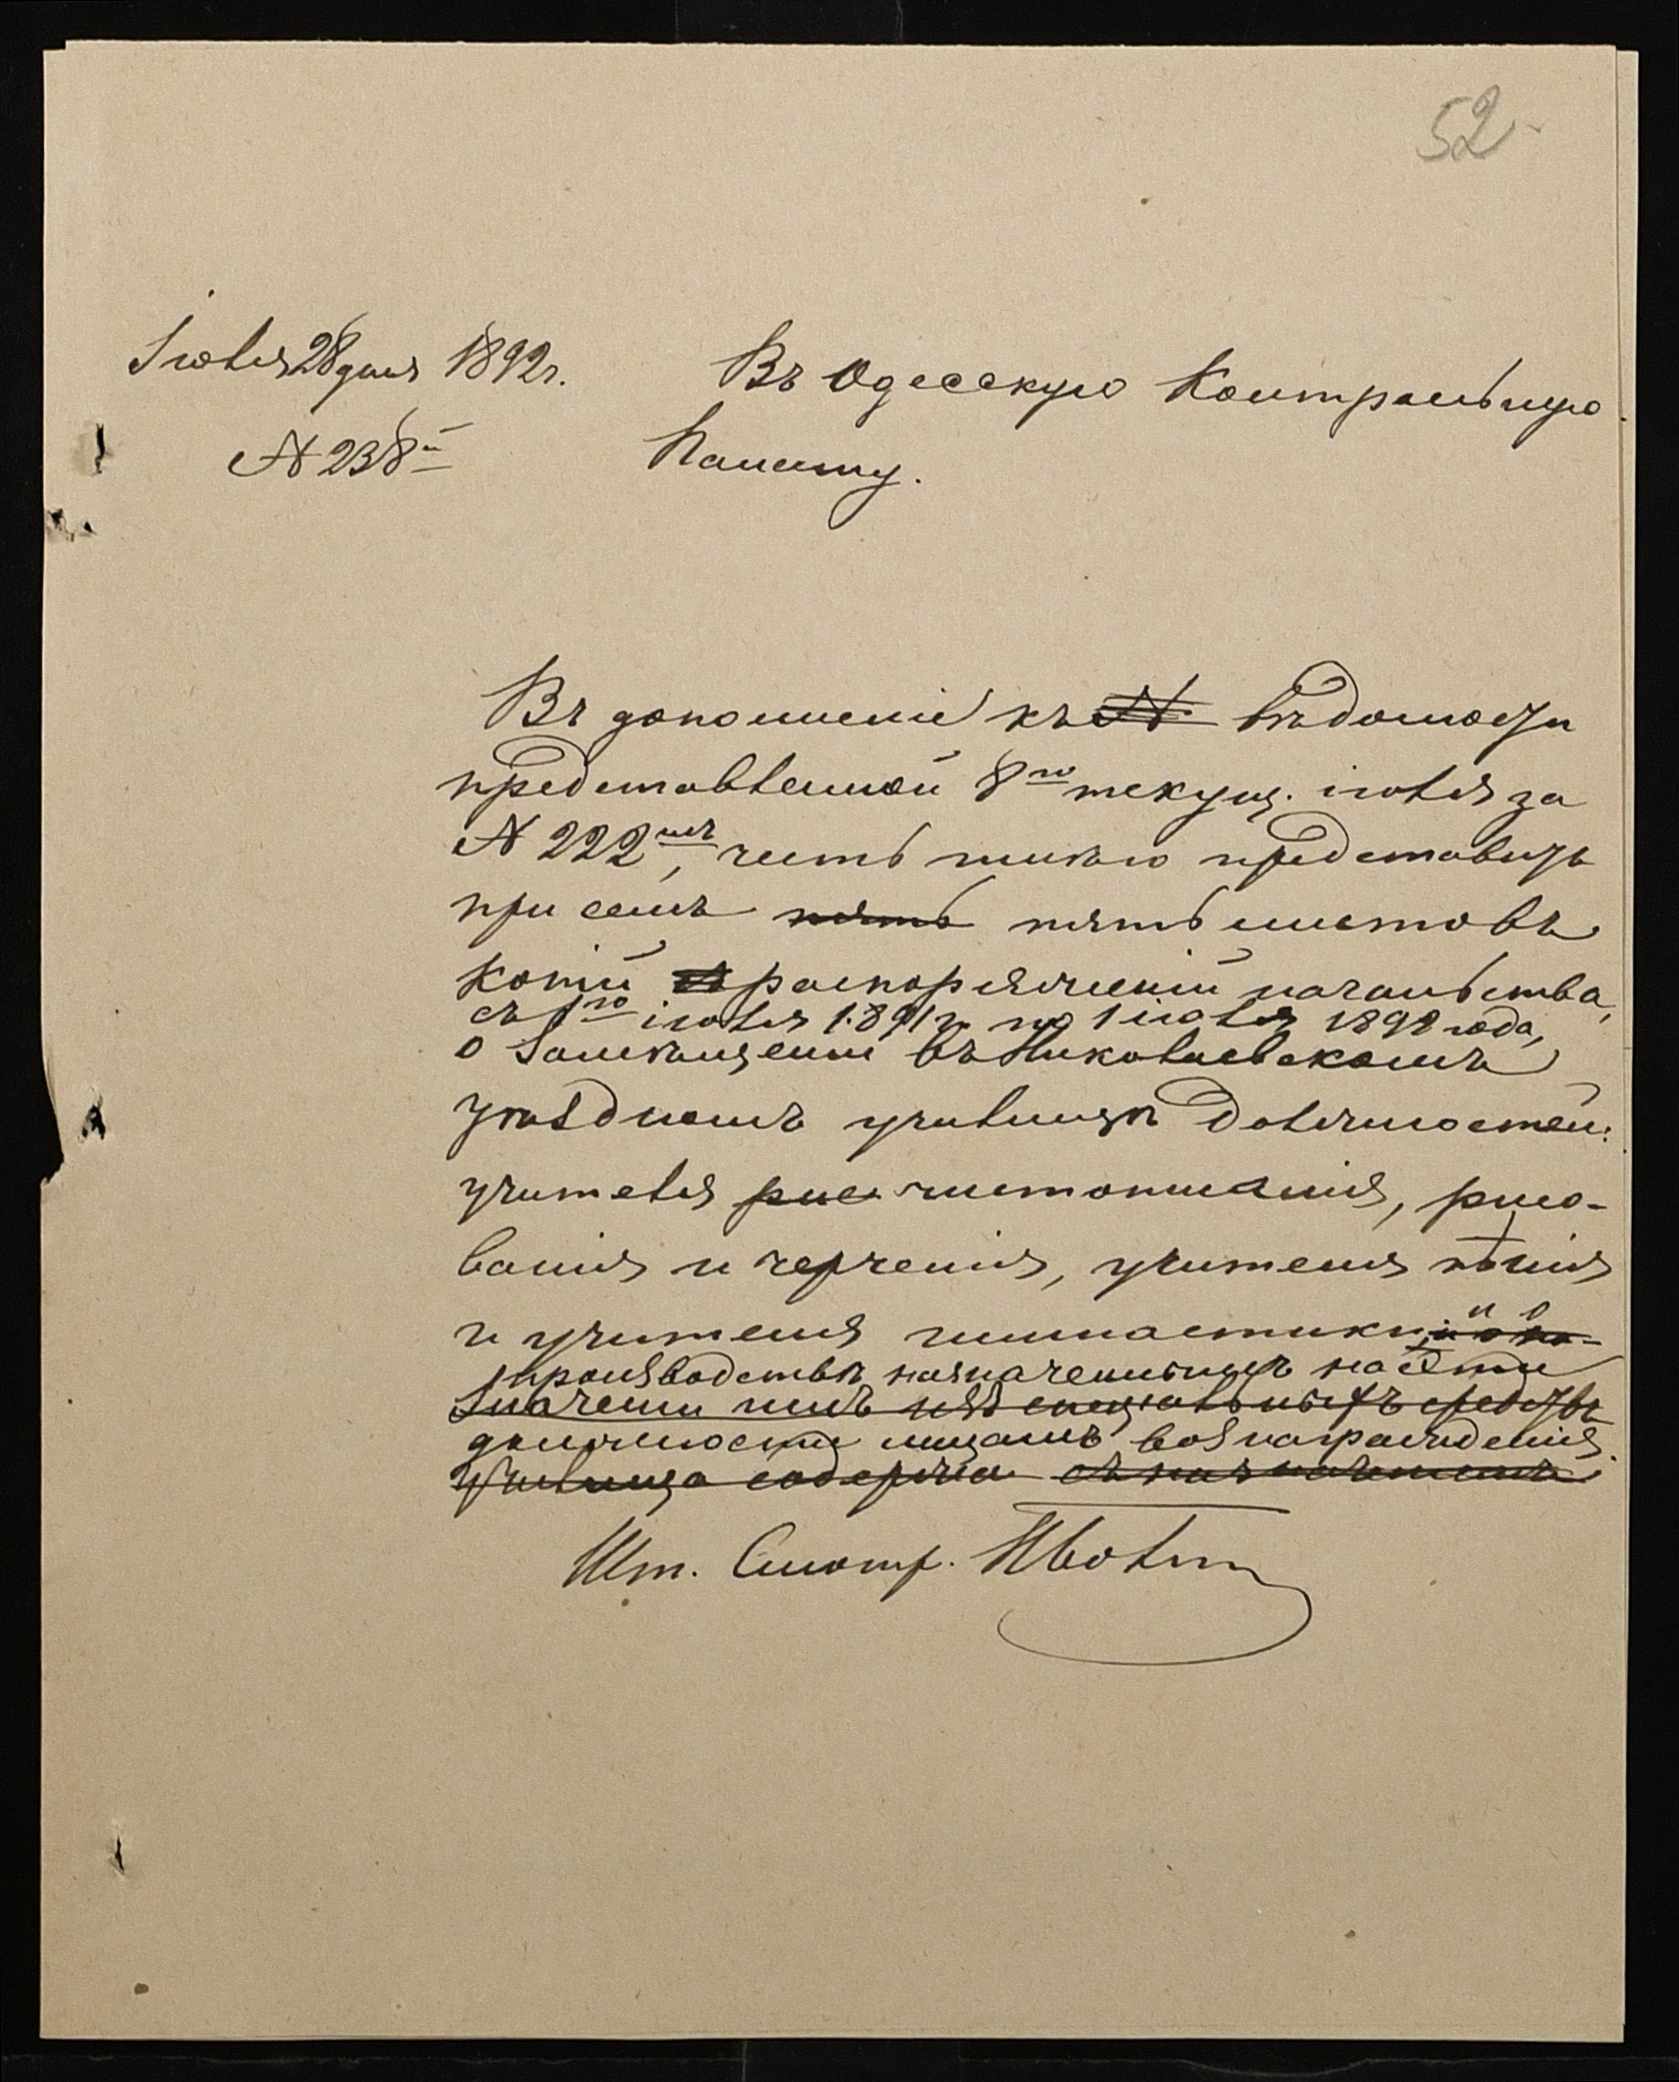 52
Іюля 28 дня 1892 г.
Въ Одесскую Контрольную
№ 238й
Палату.
Въ дополненіе къ № вѣдомости
представленной 8го текущ. іюля за
№ 222мъ, честь имѣю представить
при семъ пять пять листовъ
копій распоряженій начальства,
съ 1го іюля 1891 г. по 1 іюля 1892 года,
о замѣщеніи въ Николаевскомъ
уѣздномъ училищѣ должностей:
учителя рис чистописанія, рисо-
ванія и черченія, учителя пѣнія
и учителя гимнастики и о
производствѣ назначеннымъ на эти
значеніи имъ изъ спеціальныхъ средствъ
должности лицамъ вознагражденія.
училища содержа
Шт. Смотр.